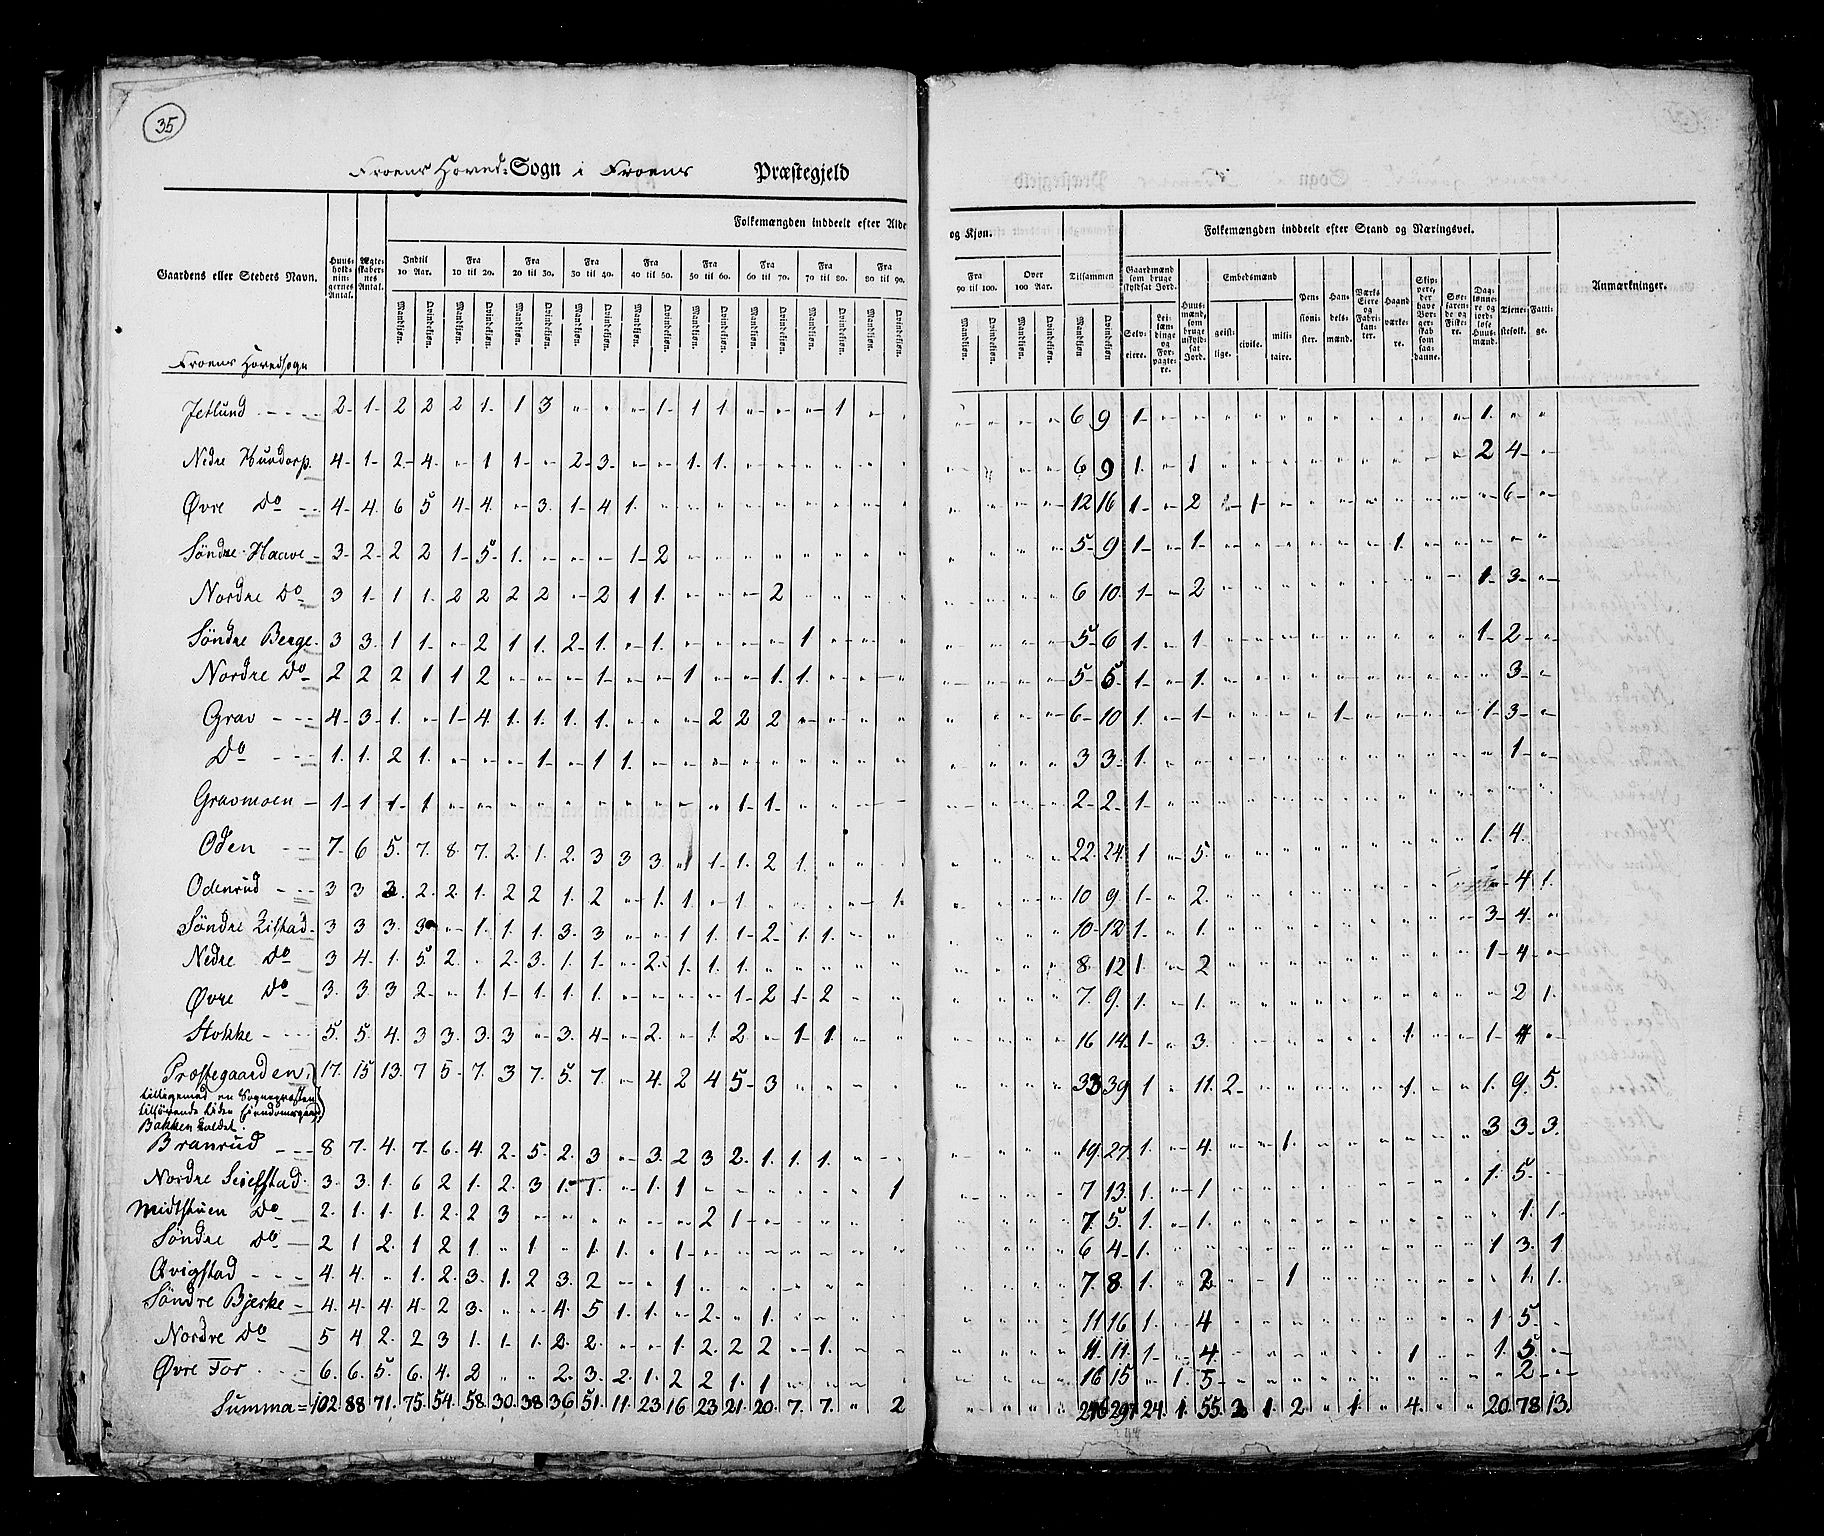 35
Froens Hoved: Sogn i Froens Præstegjeld
Folkemængden inddeelt efter Alde
og Kjøn.
Folkemængden inddeelt efter Stand og Næringsvei.
Gaardens eller Stedets Navn.
Huus-holdningernes Antal.
Ægteskabernes Antal.
Indtil 10 Aar.
Fra 10 til 20.
Fra 20 til 30.
Fra 30 til 40.
Fra 40 til 50.
Fra 50 til 60.
Fra 60 til 70.
Fra 70 til 80.
Fra 80 til 90.
Fra 90 til 100.
Over 100 Aar.
Tilsammen
Mandkjøn. Qvindekjøn.
Gaardmænd som bruge skyldsat Jord.
Selveiere.
Leilændinge og Forpagtere.
Huusmænd, som bruge uskyldsat Jord.
Embedsmænd
geistlige. civile. militaire.
Pensionister.
Handelsmænd.
Værks Eiere og Fabrikanter.
Haandværkere.
Skippere, der have Borgerskab som saadanne.
Søefarende og Fiskere.
Daglønnere og jordløse Huusmænd.
Tjenestefolk.
Fattige.
Anmærkninger.
Froens Hovedsogn
Jetlund 2 1 2 2 2 1 1 3 " " " 1 1 1 " " " 1 " 6 9 1 " " 1 " "
Nedre Hundorp 4 1 2 4 " 1 1 " 2 3 " " 1 1 " " 6 9 1 " 1 2 4 "
Øvre Do 4 4 6 5 4 4 " 3 1 4 1 " " 12 16 1 " 2 " 1 " 6 "
Søndre Haave 3 2 2 2 1 5 1 " " " 1 2 " 5 9 1 " 1 " 1 " " "
Nordre Do 3 1 1 1 2 2 2 2 " 2 1 1 " " " 2 " 6 10 1 " 2 " 1 3 "
Søndre Berge 3 3 1 1 " 2 1 1 2 1 " 1 " 1 " 5 6 1 " 1 " 1 2 "
Nordre Do 2 2 2 1 1 2 " " " 1 " " 1 " " 1 1 " 5 5 1 " 1 " " 3 "
Grav 4 3 1 " 1 4 1 1 1 1 " " " 2 2 2 " 6 10 1 " 1 " 1 " 1 3 "
Do 1 1 2 1 " " " 1 " 1 1 " 3 3 1 " " 1 "
Gravmoen 1 1 1 1 " " 1 1 " 2 2 1 "
Oden 7 6 5 7 8 7 2 1 2 3 3 3 " 1 1 2 1 " 22 24 1 " 5 " 1 4
Odenrud 3 3 3 2 2 1 2 2 1 2 " 1 1 " 1 " 1 10 9 1 " 2 " 4 1
Søndre Listad 3 3 3 3 " 1 1 1 3 3 " " 1 1 1 2 1 1 " 10 12 1 " 1 " 3 4 "
Nedre Do 3 4 1 5 2 " 2 3 1 1 " 2 1 1 1 " 8 12 1 " 2 " 1 4 "
Øvre Do 3 3 3 2 " 1 1 1 1 1 " " " " 1 2 1 2 " 7 9 1 " 1 " 2 1
Stokke 5 5 4 3 3 3 3 " 3 4 " 2 " 1 2 " 1 1 " 16 14 1 " 3 " 1 " 1 4 "
Prostegaarden 17 15 13 7 5 7 3 7 5 7 " 4 2 4 5 3 " 33 39 1 " 11 2 " 1 " 1 9 5
tilligemed en Sognepræsten
tilhørende liden Eiendomsgaard
Bakken kaldet.
Branrud 8 7 4 7 6 4 2 5 2 3 " 3 2 3 2 1 1 1 " 19 27 1 " 4 " " 1 " 3 3 3
Nordre Seielstad 3 3 1 6 2 1 2 3 1 1 " 1 1 " 1 7 13 1 " 1 " 1 5
Midtstuen Do 2 1 1 1 2 2 3 " 2 1 " 7 5 1 " 1 " 1 1
Søndre Do 2 1 2 1 2 1 " 1 " 1 1 " 1 " 6 4 1 " 1 3 1
Qvigstad 4 4 " 1 2 3 1 2 3 2 " " 1 " 7 8 1 " 2 " 1 " 1 1
Søndre Bjerke 4 4 4 4 2 3 " " 4 5 1 1 " 2 " 1 " 11 16 1 " 4 " 1 5
Nordre Do 5 4 2 2 3 1 1 1 2 2 " 1 2 2 2 " 1 " 11 11 1 " 4 " 1 " 1 5 "
Øvre For 6 6 5 6 4 2 " " 2 3 2 1 2 2 1 1 " 16 15 " 1 5 " 2 "
Summa = 102 88 71 75 54 58 30 38 36 51 11 23 16 23 21 20 7 7 " 2 246 297 24 1 55 2 1 2 " 1 " 4 " " 20 78 13